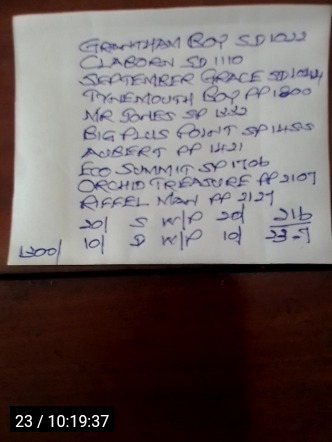 GRANTHAM BOY SD 1022
CLABORN SD 1110
SEPTEMBER GRACE SD
TYNEMOUTH BOY PP 1200
MR JONES SP
BIG PLUS POINT SP 1455
AUBERT PP 1421
ECO SUMMIT SP 1706
ORCHID TREASURE PP 2107
RIFFEL MAN PP 2127
20/ S W/P 20/ 216
10/ D W/P 10/
23 / 10:19:37